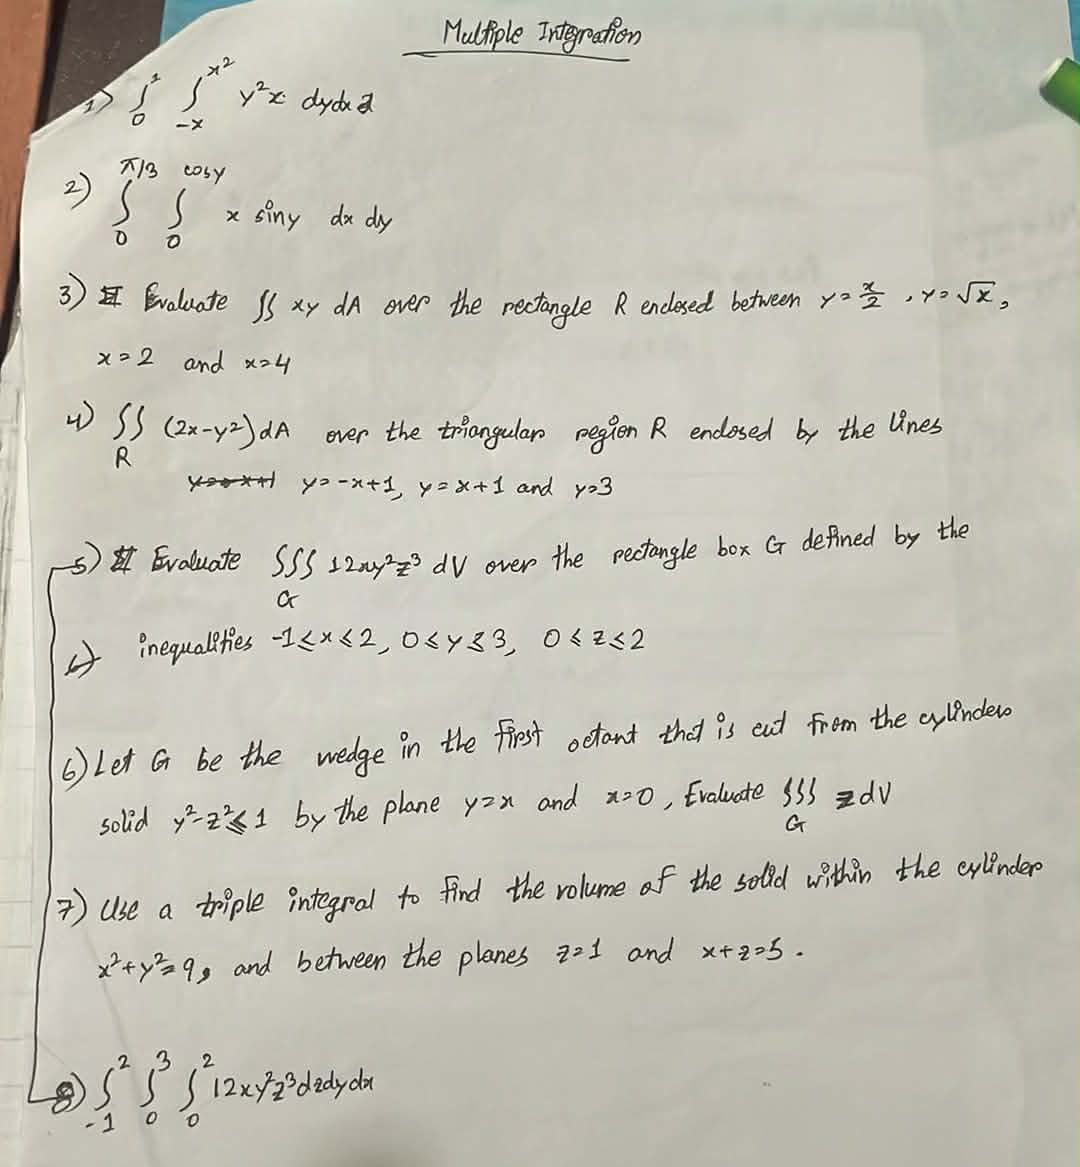 Multiple Integration
1) ∫₀¹ ∫₋ₓ^x² y²x dydx
2) ∫₀^π/3 ∫₀^cosy x siny dx dy
3) Evaluate ∫∫ xy dA over the rectangle R enclosed between y = x/2 , y = √x,
x = 2 and x = 4
4) ∫∫_R (2x-y²)dA over the triangular region R enclosed by the lines
y = -x+1, y = x+1 and y=3
5) Evaluate ∫∫∫_G 12xy²z³ dV over the rectangle box G defined by the
inequalities -1≤x≤2, 0≤y≤3, 0≤z≤2
6) Let G be the wedge in the first octant that is cut from the cylinder
solid y²-z²≤1 by the plane y=x and x=0, Evaluate ∫∫∫_G z dV
7) Use a triple integral to find the volume of the solid within the cylinder
x²+y²=9, and between the planes z=1 and x+z=5.
8) ∫₋₁² ∫₀³ ∫₀² 12xy²z³dzdydx